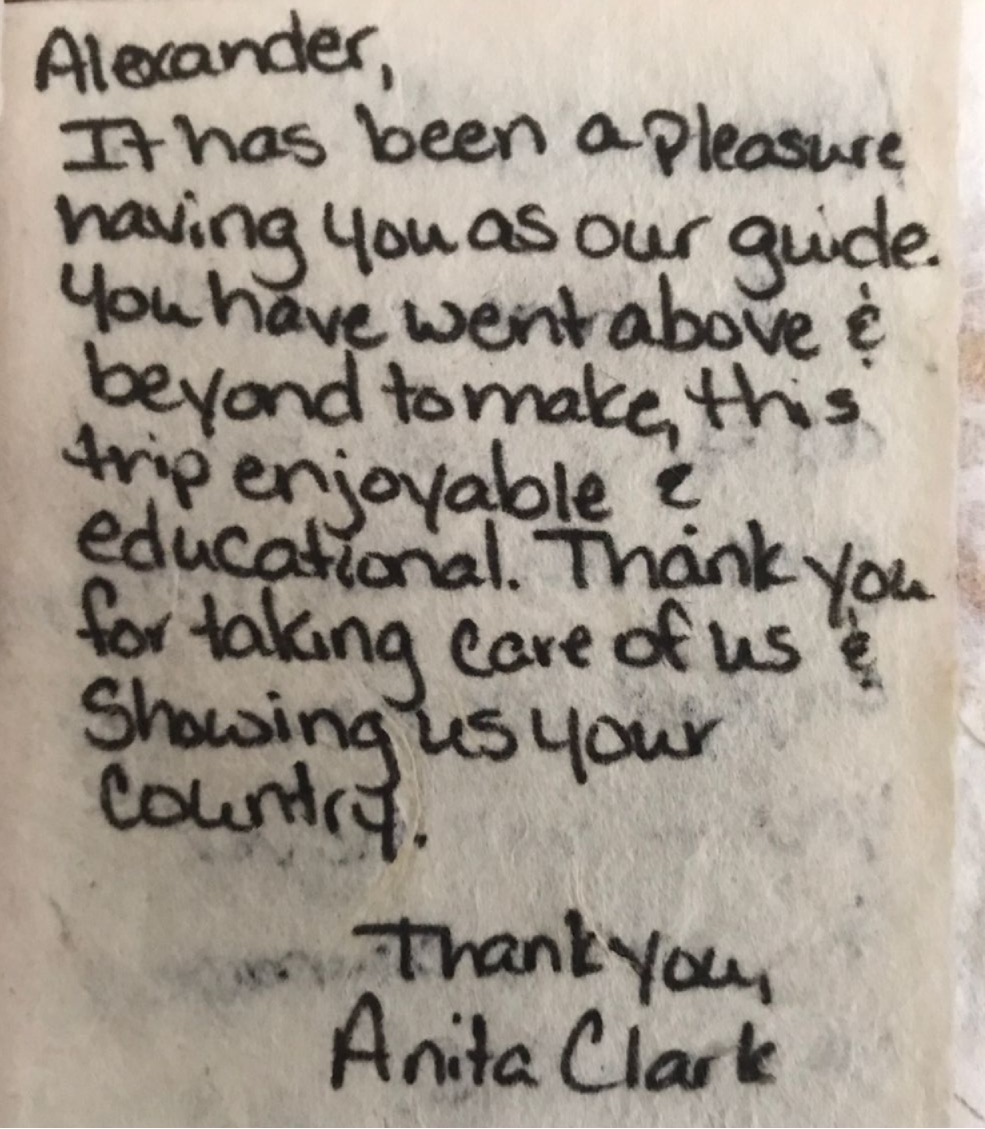 Alexander,
It has been a pleasure
having you as our guide.
You have went above &
beyond to make, this
trip enjoyable &
educational. Thank you
for taking care of us &
Showing us your
Country.
Thank you,
Anita Clark